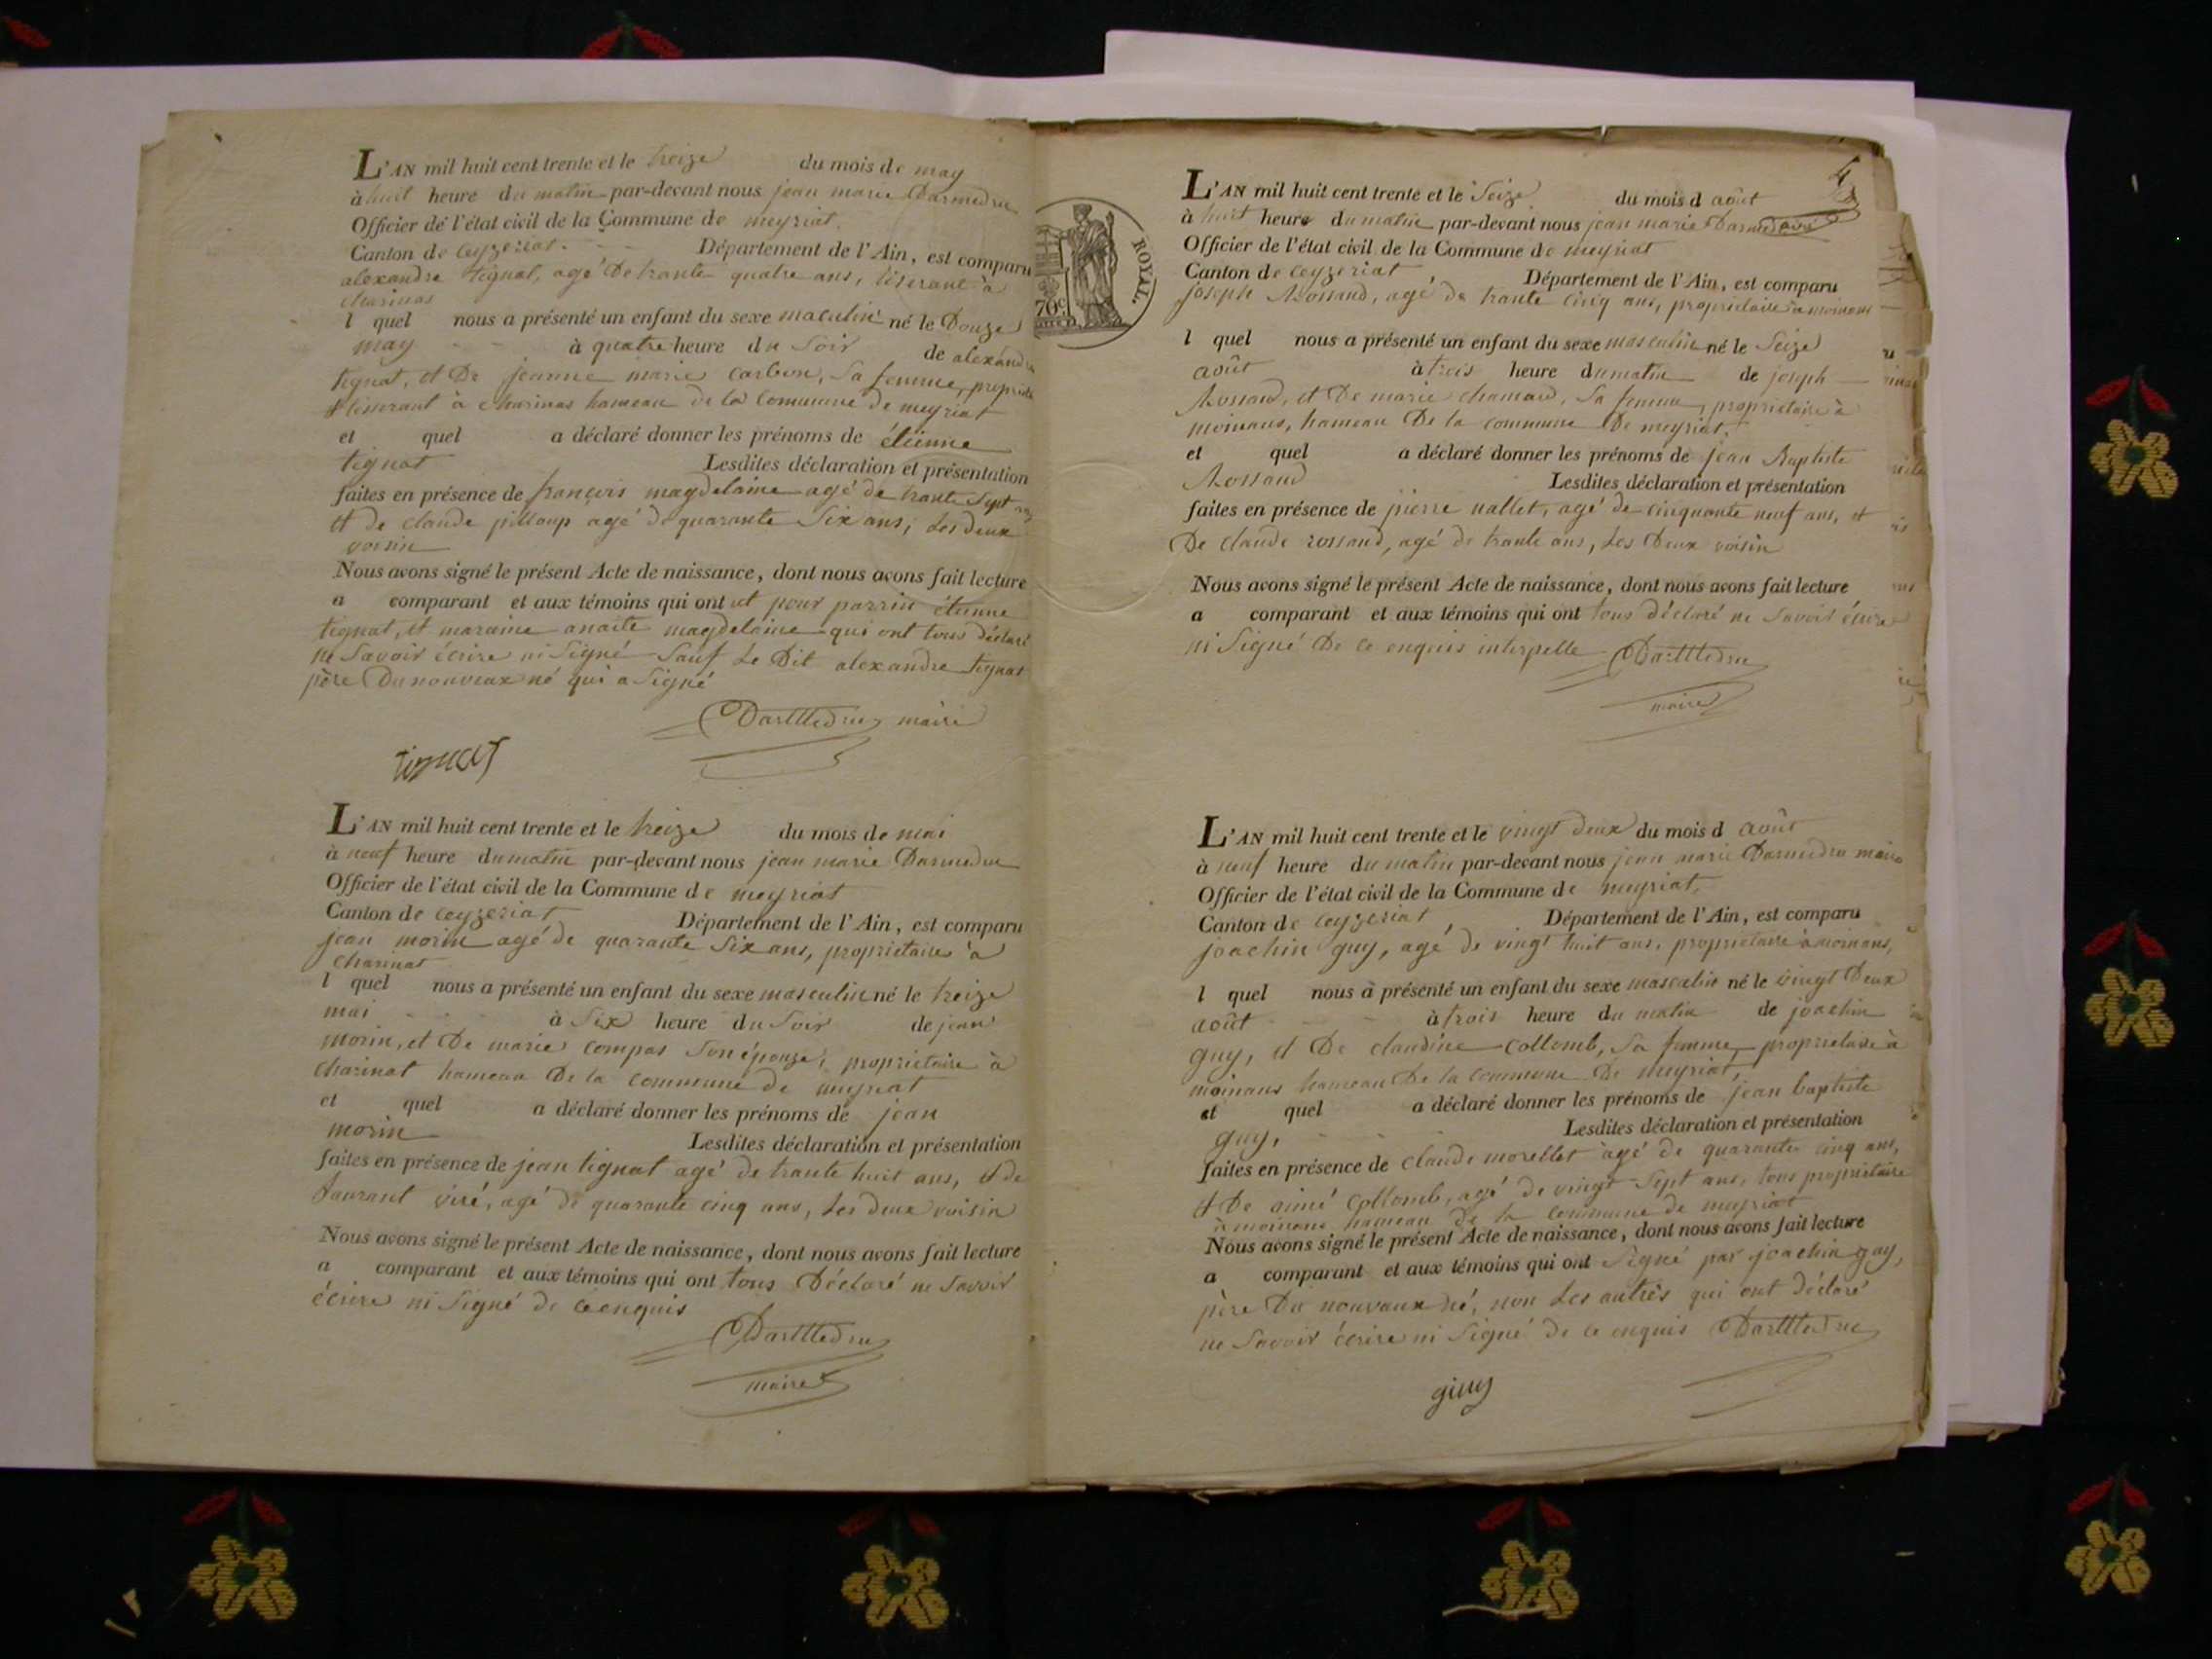 L'AN mil huit cent trente et le treize du mois de may
à huit heure du matin par-devant nous jean marie Darmedru
Officier de l'état civil de la Commune de meyriat.
Canton de Ceyzeriat. Département de l'Ain, est comparu
alexandre tignat, agé De trante quatre ans, tiserant à
charinas
l quel nous a présenté un enfant du sexe maculin né le Douze
may à quatre heure du Soir de alexandre
tignat, et De jeanne marie carbon, Sa femme, propriet
tiserant à charinas hameau de la Commune De meyriat
et quel a déclaré donner les prénoms de étienne
tignat Lesdites déclaration et présentation
faites en présence de françois magdelaine agé de trante Sept ans
et de claude pilloup agé de quarante Six ans, Les deux
voisin
Nous avons signé le présent Acte de naissance, dont nous avons fait lecture
a comparant et aux témoins qui ont et pour parrin étienne
tignat, et maraine anaite magdelaine qui ont tous déclaré
ne Savoir écrire ni Signé Sauf Le Dit alexandre tignat
père Du nouveax né qui a Signé
Darmedru maire
tignat
L'AN mil huit cent trente et le treize du mois de mai
à neuf heure du matin par-devant nous jean marie Darmedru
Officier de l'état civil de la Commune de meyriat
Canton de ceyzeriat Département de l'Ain, est comparu
jean morin agé de quarante Six ans, proprietaire à
charinat
l quel nous a présenté un enfant du sexe masculin né le treize
mai à Six heure du Soir de jean
morin, et De marie compas Son épouze, proprietaire à
charinat hameau De la commune de meyriat
et quel a déclaré donner les prénoms de jean
morin Lesdites déclaration et présentation
faites en présence de jean tignat agé de trante huit ans, et de
Laurant viré, agé de quarante cinq ans, Les deux voisin
Nous avons signé le présent Acte de naissance, dont nous avons fait lecture
a comparant et aux témoins qui ont tous Déclaré ne Savoir
écrire ni Signé de ce enquis
Darmedru
maire
4
ROYAL.
70c
L'AN mil huit cent trente et le Seize du mois d août
à huit heure du matin par-devant nous jean marie Darmedru
Officier de l'état civil de la Commune de meyriat
Canton de Ceyzeriat, Département de l'Ain, est comparu
joseph Rossand, agé de trante cinq ans, proprietaire à moinans
l quel nous a présenté un enfant du sexe masculin né le Seize
août à trois heure du matin de joseph
Rossand, et De marie chamard, Sa femme, proprietaire à
moinans, hameau De la commune De meyriat.
et quel a déclaré donner les prénoms de jean Baptiste
Rossand Lesdites déclaration et présentation
faites en présence de pierre nallet, agé de cinquante neuf ans, et
De claude rossand, agé de trante ans, Les Deux voisin
Nous avons signé le présent Acte de naissance, dont nous avons fait lecture
a comparant et aux témoins qui ont tous déclaré ne Savoir écrire
ni Signé De ce enquis interpelle Darmedru
maire
L'AN mil huit cent trente et le vingt deux du mois d août
à neuf heure du matin par-devant nous jean marie Darmedru maire
Officier de l'état civil de la Commune de meyriat,
Canton de Ceyzeriat Département de l'Ain, est comparu
joachin guy, agé de vingt huit ans, proprietaire à moinans,
l quel nous a présenté un enfant du sexe masculin né le vingt Deux
août à trois heure du matin de joachin
guy, et De claudine collomb, Sa femme, proprietaire à
moinans hameau De la Commune De meyriat,
et quel a déclaré donner les prénoms de jean baptiste
guy, Lesdites déclaration et présentation
faites en présence de claude morellet agé de quarante cinq ans,
et De aimé collomb, agé de vingt Sept ans, tous proprietaire
à moinans hameau de la commune de meyriat
Nous avons signé le présent Acte de naissance, dont nous avons fait lecture
a comparant et aux témoins qui ont Signé par joachin guy,
père Du nouvaux né, non Les autres qui ont déclaré
ne Savoir écrire ni Signé de ce enquis Darmedru
guy